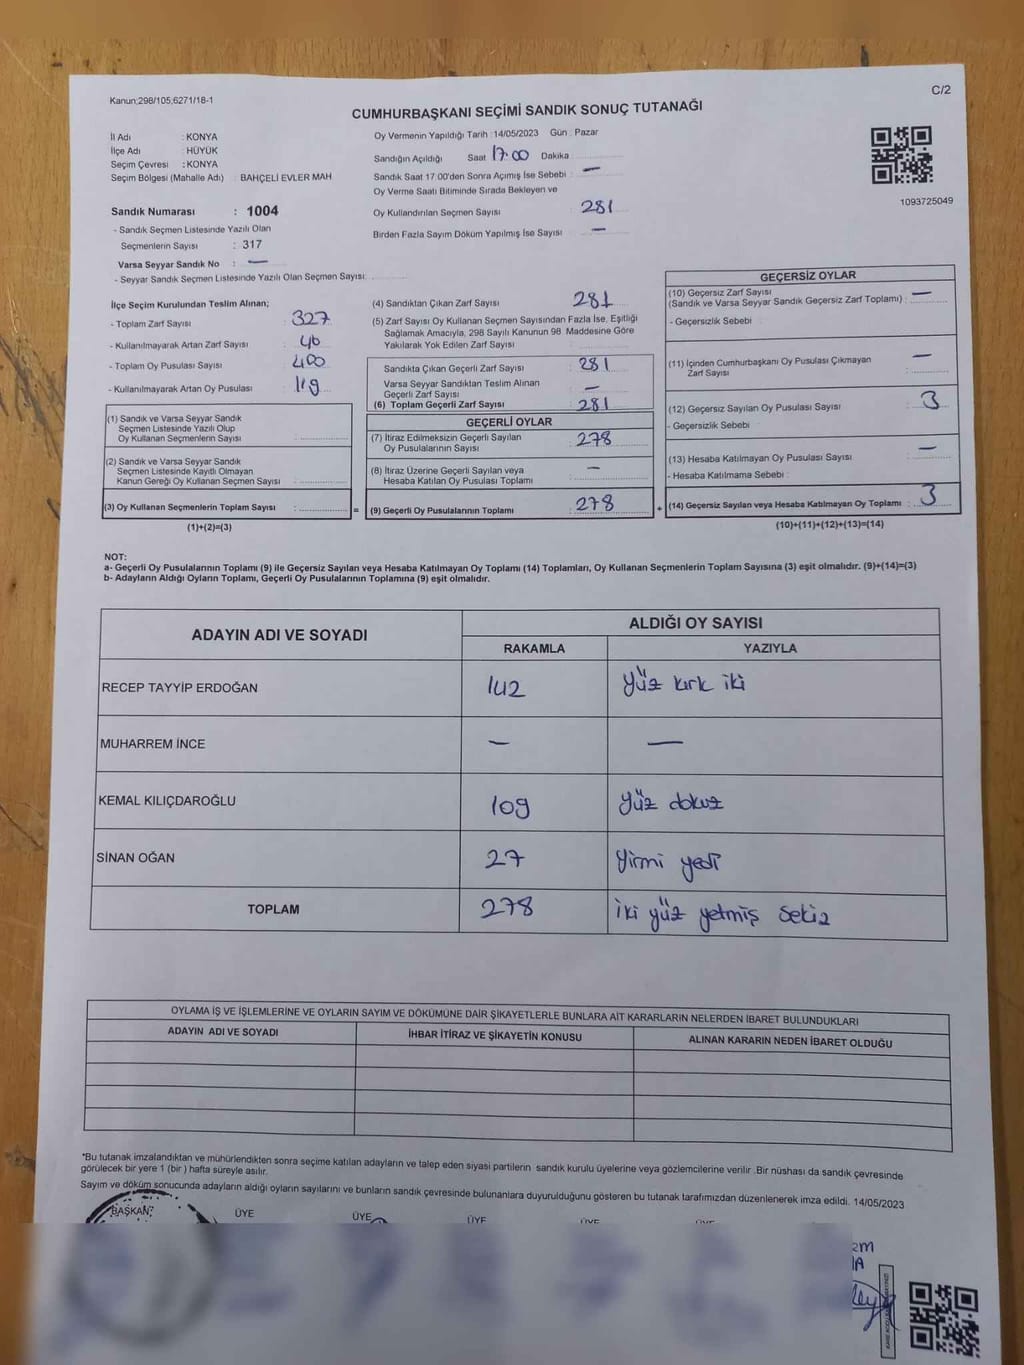 Kanun;298/105,6271/18-1
C/2
CUMHURBAŞKANI SEÇİMİ SANDIK SONUÇ TUTANAĞI
İl Adı : KONYA
İlçe Adı : HÜYÜK
Seçim Çevresi : KONYA
Seçim Bölgesi (Mahalle Adı) : BAHÇELİ EVLER MAH
Oy Vermenin Yapıldığı Tarih :14/05/2023 Gün : Pazar
Sandığın Açıldığı Saat 17:00 Dakika
Sandık Saat 17:00'den Sonra Açımış İse Sebebi : —
Oy Verme Saati Bitiminde Sırada Bekleyen ve
Oy Kullandırılan Seçmen Sayısı : 281
Birden Fazla Sayım Döküm Yapılmış İse Sayısı : —
1093725049
Sandık Numarası : 1004
- Sandık Seçmen Listesinde Yazılı Olan
Seçmenlerin Sayısı : 317
Varsa Seyyar Sandık No : —
- Seyyar Sandık Seçmen Listesinde Yazılı Olan Seçmen Sayısı:
İlçe Seçim Kurulundan Teslim Alınan;
- Toplam Zarf Sayısı : 327
- Kullanılmayarak Artan Zarf Sayısı : 46
- Toplam Oy Pusulası Sayısı : 400
- Kullanılmayarak Artan Oy Pusulası : 119
(1) Sandık ve Varsa Seyyar Sandık
Seçmen Listesinde Yazılı Olup
Oy Kullanan Seçmenlerin Sayısı :
(2) Sandık ve Varsa Seyyar Sandık
Seçmen Listesinde Kayıtlı Olmayan
Kanun Gereği Oy Kullanan Seçmen Sayısı :
(3) Oy Kullanan Seçmenlerin Toplam Sayısı : =
(1)+(2)=(3)
(4) Sandıktan Çıkan Zarf Sayısı : 281
(5) Zarf Sayısı Oy Kullanan Seçmen Sayısından Fazla İse, Eşitliği
Sağlamak Amacıyla, 298 Sayılı Kanunun 98. Maddesine Göre
Yakılarak Yok Edilen Zarf Sayısı :
Sandıkta Çıkan Geçerli Zarf Sayısı : 281
Varsa Seyyar Sandıktan Teslim Alınan
Geçerli Zarf Sayısı : —
(6) Toplam Geçerli Zarf Sayısı : 281
GEÇERLİ OYLAR
(7) İtiraz Edilmeksizin Geçerli Sayılan
Oy Pusulalarının Sayısı : 278
(8) İtiraz Üzerine Geçerli Sayılan veya
Hesaba Katılan Oy Pusulası Toplamı : —
(9) Geçerli Oy Pusulalarının Toplamı : 278 +
GEÇERSİZ OYLAR
(10) Geçersiz Zarf Sayısı
(Sandık ve Varsa Seyyar Sandık Geçersiz Zarf Toplamı) : —
- Geçersizlik Sebebi :
(11) İçinden Cumhurbaşkanı Oy Pusulası Çıkmayan
Zarf Sayısı : —
(12) Geçersiz Sayılan Oy Pusulası Sayısı : 3
- Geçersizlik Sebebi :
(13) Hesaba Katılmayan Oy Pusulası Sayısı : —
- Hesaba Katılmama Sebebi :
(14) Geçersiz Sayılan veya Hesaba Katılmayan Oy Toplamı : 3
(10)+(11)+(12)+(13)=(14)
NOT:
a- Geçerli Oy Pusulalarının Toplamı (9) ile Geçersiz Sayılan veya Hesaba Katılmayan Oy Toplamı (14) Toplamları, Oy Kullanan Seçmenlerin Toplam Sayısına (3) eşit olmalıdır. (9)+(14)=(3)
b- Adayların Aldığı Oyların Toplamı, Geçerli Oy Pusulalarının Toplamına (9) eşit olmalıdır.
ADAYIN ADI VE SOYADI ALDIĞI OY SAYISI
RAKAMLA YAZIYLA
RECEP TAYYİP ERDOĞAN 142 yüz kırk iki
MUHARREM İNCE — —
KEMAL KILIÇDAROĞLU 109 yüz dokuz
SİNAN OĞAN 27 yirmi yedi
TOPLAM 278 iki yüz yetmiş sekiz
OYLAMA İŞ VE İŞLEMLERİNE VE OYLARIN SAYIM VE DÖKÜMÜNE DAİR ŞİKAYETLERLE BUNLARA AİT KARARLARIN NELERDEN İBARET BULUNDUKLARI
ADAYIN ADI VE SOYADI İHBAR İTİRAZ VE ŞİKAYETİN KONUSU ALINAN KARARIN NEDEN İBARET OLDUĞU
*Bu tutanak imzalandıktan ve mühürlendikten sonra seçime katılan adayların ve talep eden siyasi partilerin sandık kurulu üyelerine veya gözlemcilerine verilir .Bir nüshası da sandık çevresinde
görülecek bir yere 1 (bir ) hafta süreyle asılır.
Sayım ve döküm sonucunda adayların aldığı oyların sayılarını ve bunların sandık çevresinde bulunanlara duyurulduğunu gösteren bu tutanak tarafımızdan düzenlenerek imza edildi. 14/05/2023
BAŞKAN ÜYE ÜYE ÜYE ÜYE ÜYE